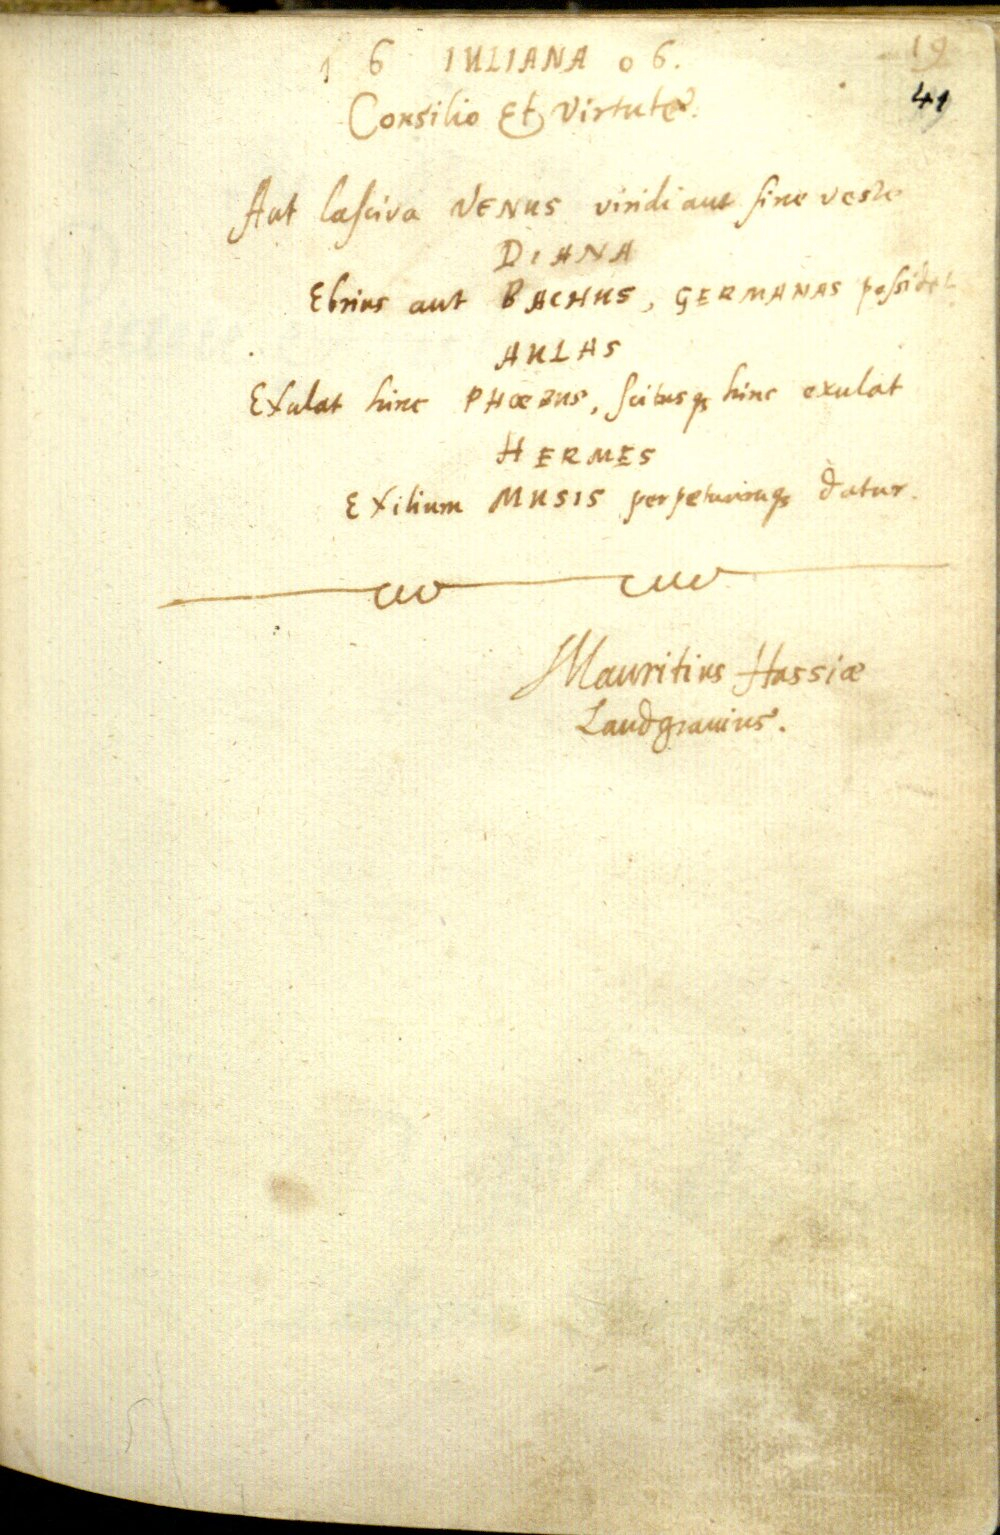 1 6 IULIANA 0 6.
19
41
Consilio Et Virtute.
Aut lasciva VENUS viridi aut sine veste
DIANA
Ebrius aut BACHUS, GERMANAS possidet
AULAS
Exulat hinc PHŒBUS, scitusq3 hinc exulat
HERMES
Exilium MUSIS perpetuumq3 datur.
Mauritius Hassiæ
Landgravius.